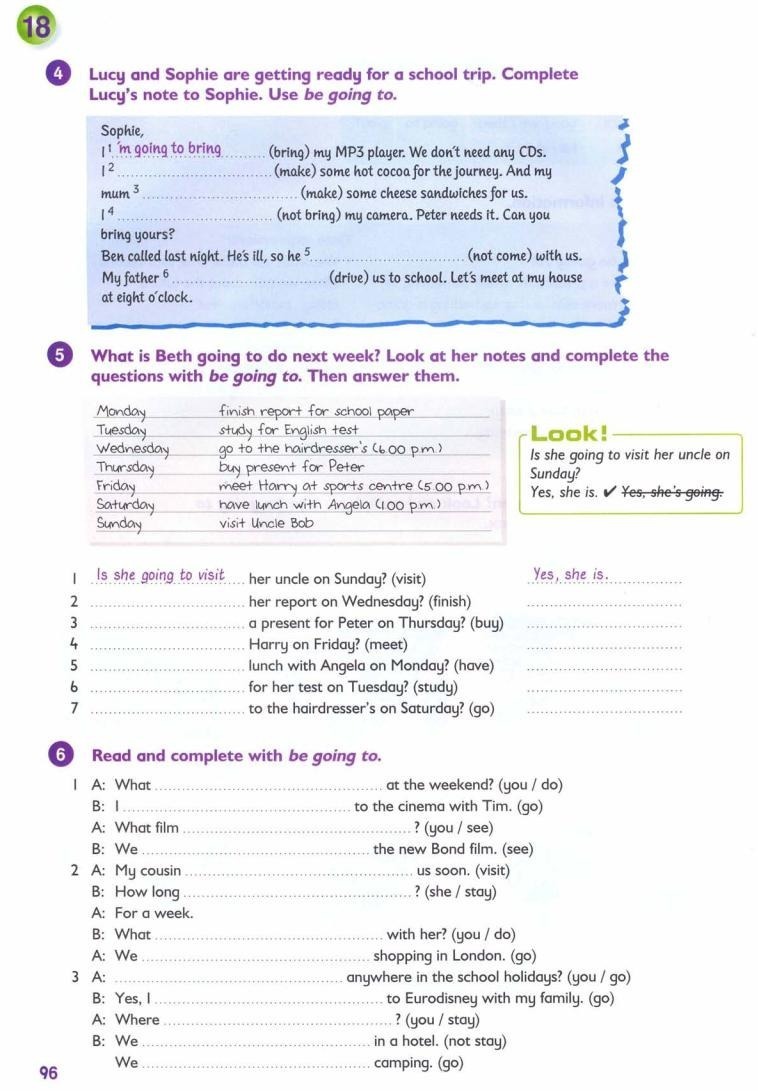 18
4 Lucy and Sophie are getting ready for a school trip. Complete
Lucy's note to Sophie. Use be going to.
Sophie,
I 1 'm going to bring (bring) my MP3 player. We don't need any CDs.
I 2 ........................ (make) some hot cocoa for the journey. And my
mum 3 ........................ (make) some cheese sandwiches for us.
I 4 ........................ (not bring) my camera. Peter needs it. Can you
bring yours?
Ben called last night. He's ill, so he 5 ........................ (not come) with us.
My father 6 ........................ (drive) us to school. Let's meet at my house
at eight o'clock.
5 What is Beth going to do next week? Look at her notes and complete the
questions with be going to. Then answer them.
Monday finish report for school paper
Tuesday study for English test
Wednesday go to the hairdresser's (6.00 p.m.)
Thursday buy present for Peter
Friday meet Harry at sports centre (5.00 p.m.)
Saturday have lunch with Angela (1.00 p.m.)
Sunday visit Uncle Bob
Look!
Is she going to visit her uncle on
Sunday?
Yes, she is. ✔ Yes, she's going.
1 Is she going to visit her uncle on Sunday? (visit) Yes, she is.
2 ........................ her report on Wednesday? (finish) ........................
3 ........................ a present for Peter on Thursday? (buy) ........................
4 ........................ Harry on Friday? (meet) ........................
5 ........................ lunch with Angela on Monday? (have) ........................
6 ........................ for her test on Tuesday? (study) ........................
7 ........................ to the hairdresser's on Saturday? (go) ........................
6 Read and complete with be going to.
1 A: What ........................ at the weekend? (you / do)
B: I ........................ to the cinema with Tim. (go)
A: What film ........................ ? (you / see)
B: We ........................ the new Bond film. (see)
2 A: My cousin ........................ us soon. (visit)
B: How long ........................ ? (she / stay)
A: For a week.
B: What ........................ with her? (you / do)
A: We ........................ shopping in London. (go)
3 A: ........................ anywhere in the school holidays? (you / go)
B: Yes, I ........................ to Eurodisney with my family. (go)
A: Where ........................ ? (you / stay)
B: We ........................ in a hotel. (not stay)
We ........................ camping. (go)
96